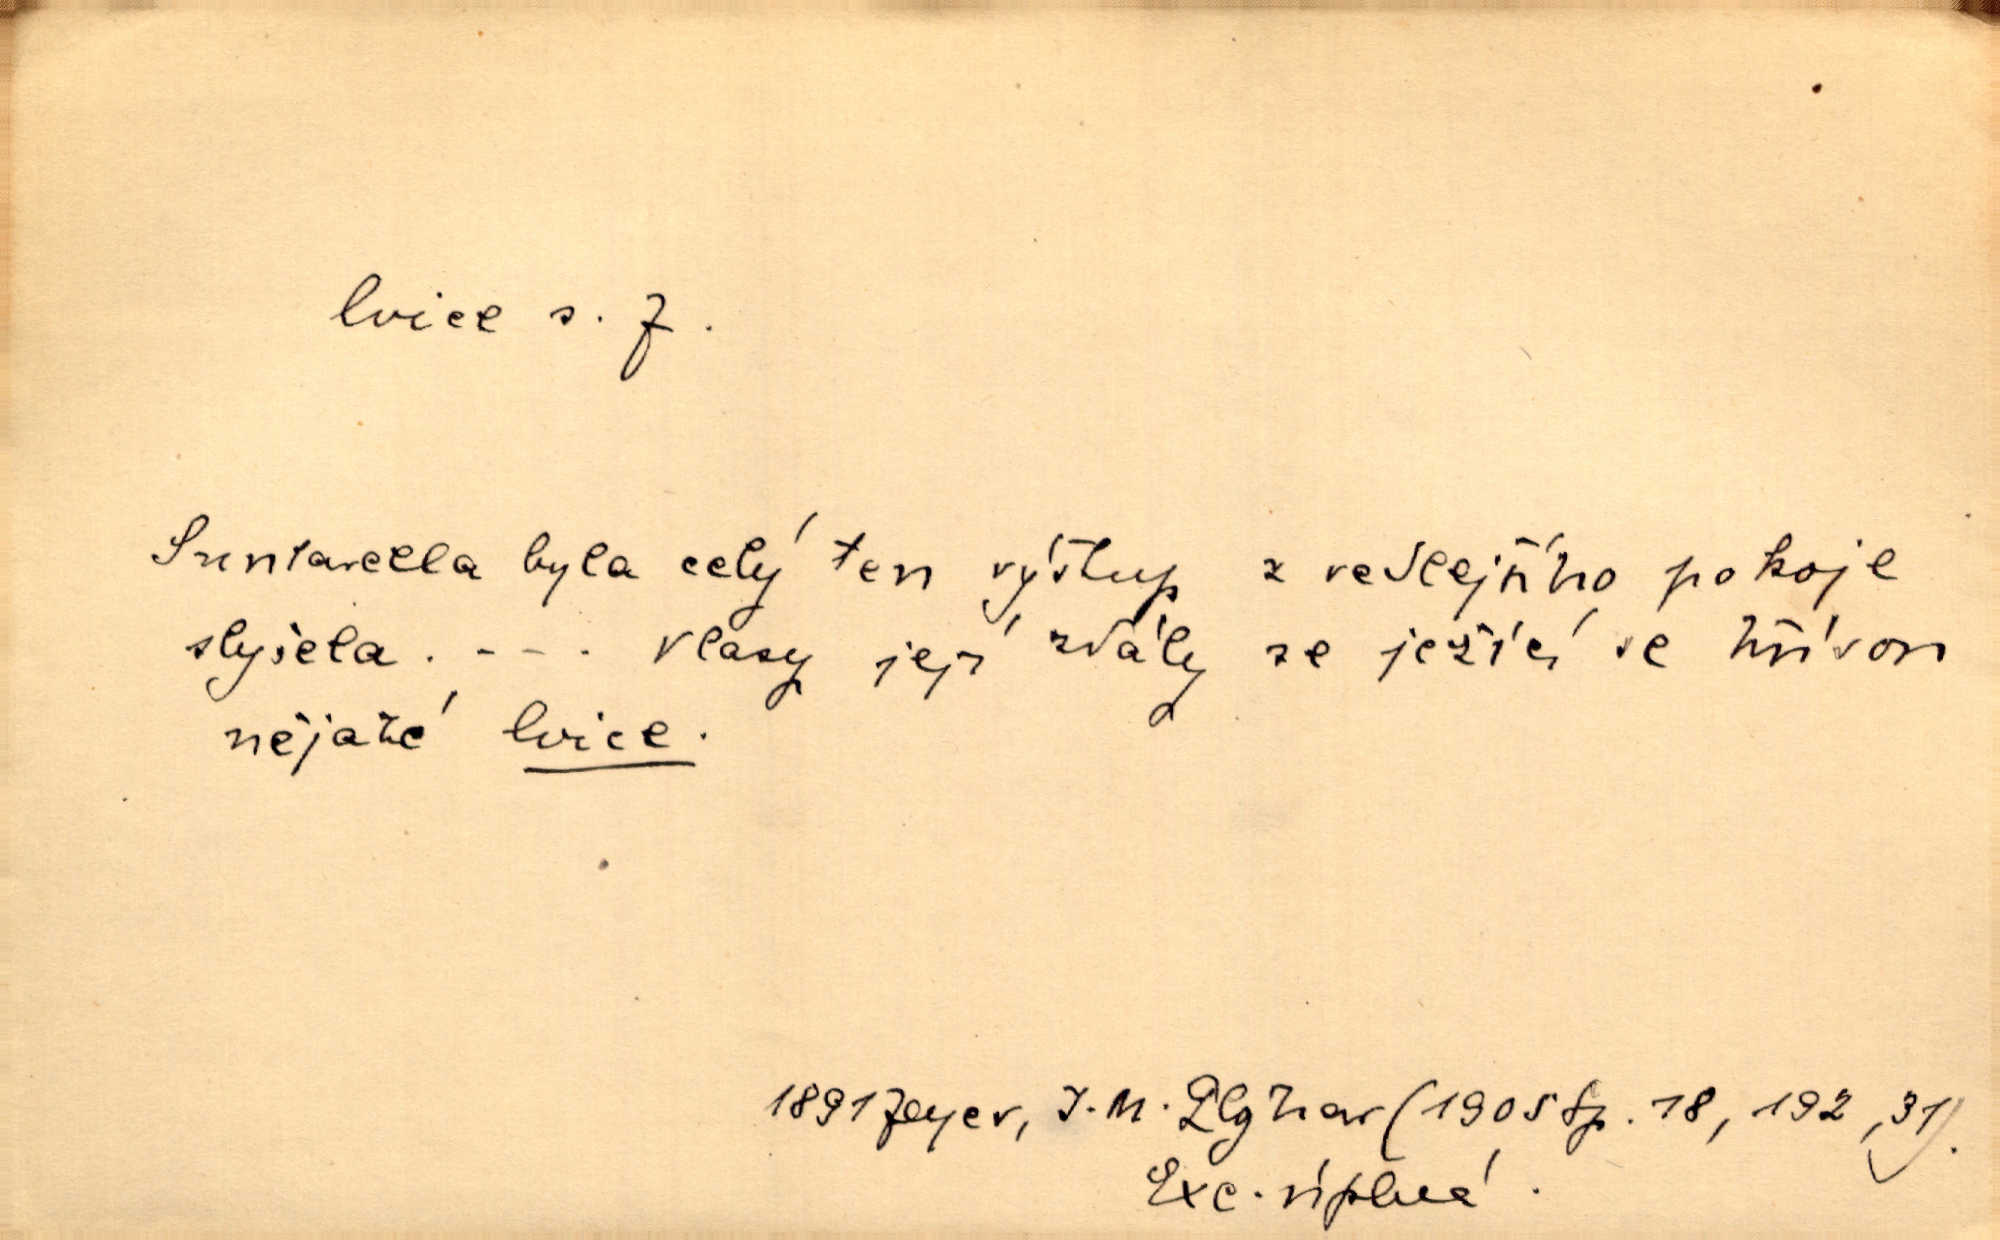 lvice s. f.
Suntarella byla celý ten výstup z vedlejšího pokoje
slyšela. - - . Vlasy její zdály se ježící se hřívou
nějaké lvice.
1891 Zeyer, J. M. Plojhar (1905 Sp. 18, 192, 31).
Exc. úplná.